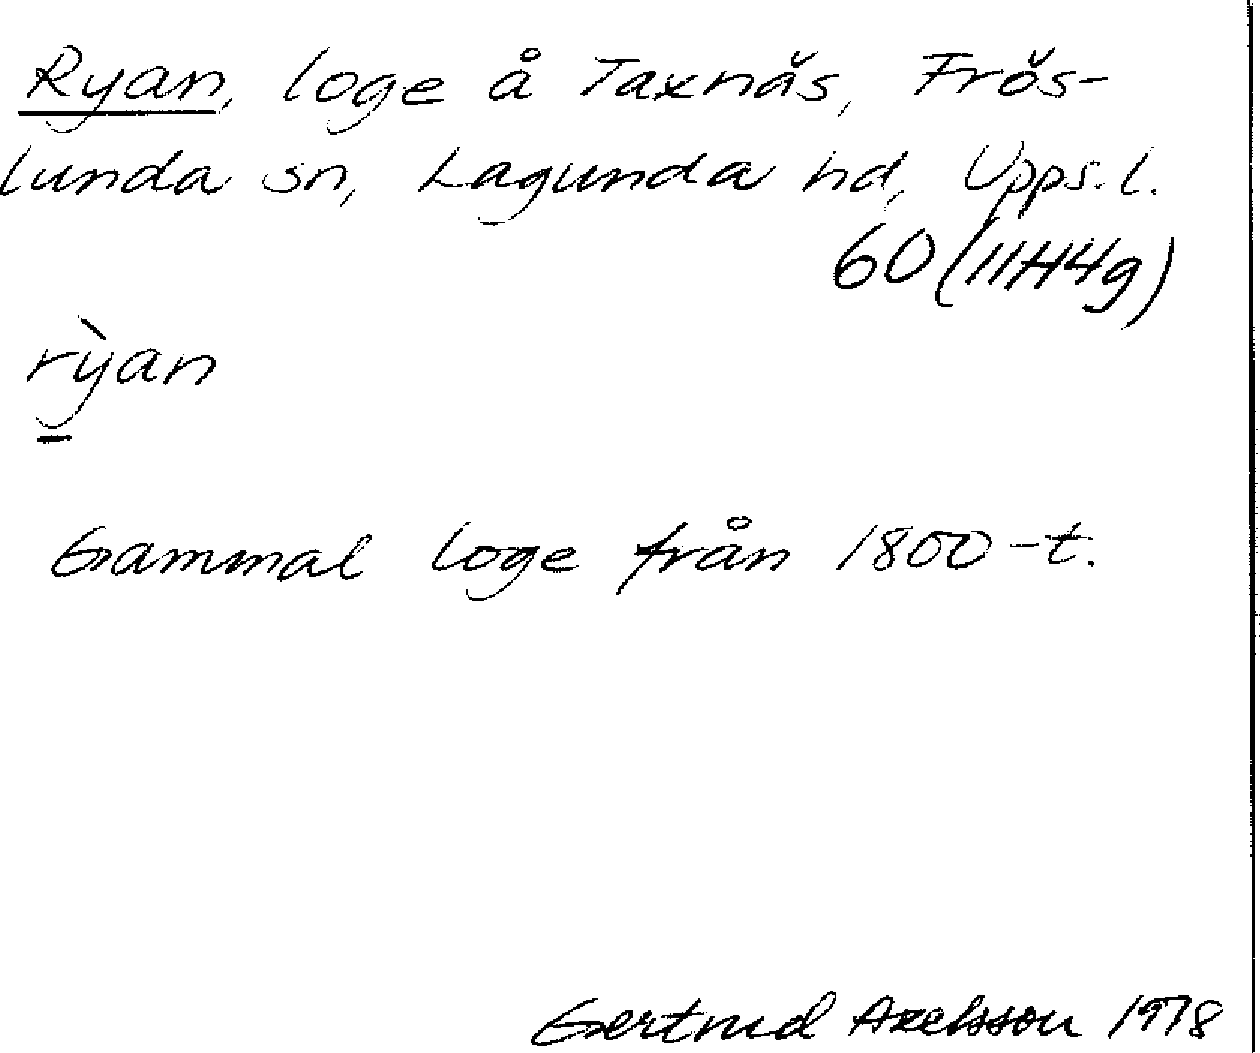 Ryan, loge å Taxnäs, Frös-
lunda sn, Lagunda hd, Upps. l.
60 (11H4g)
rỳan
Gammal loge från 1800-t.
Gertrud Axelsson 1978